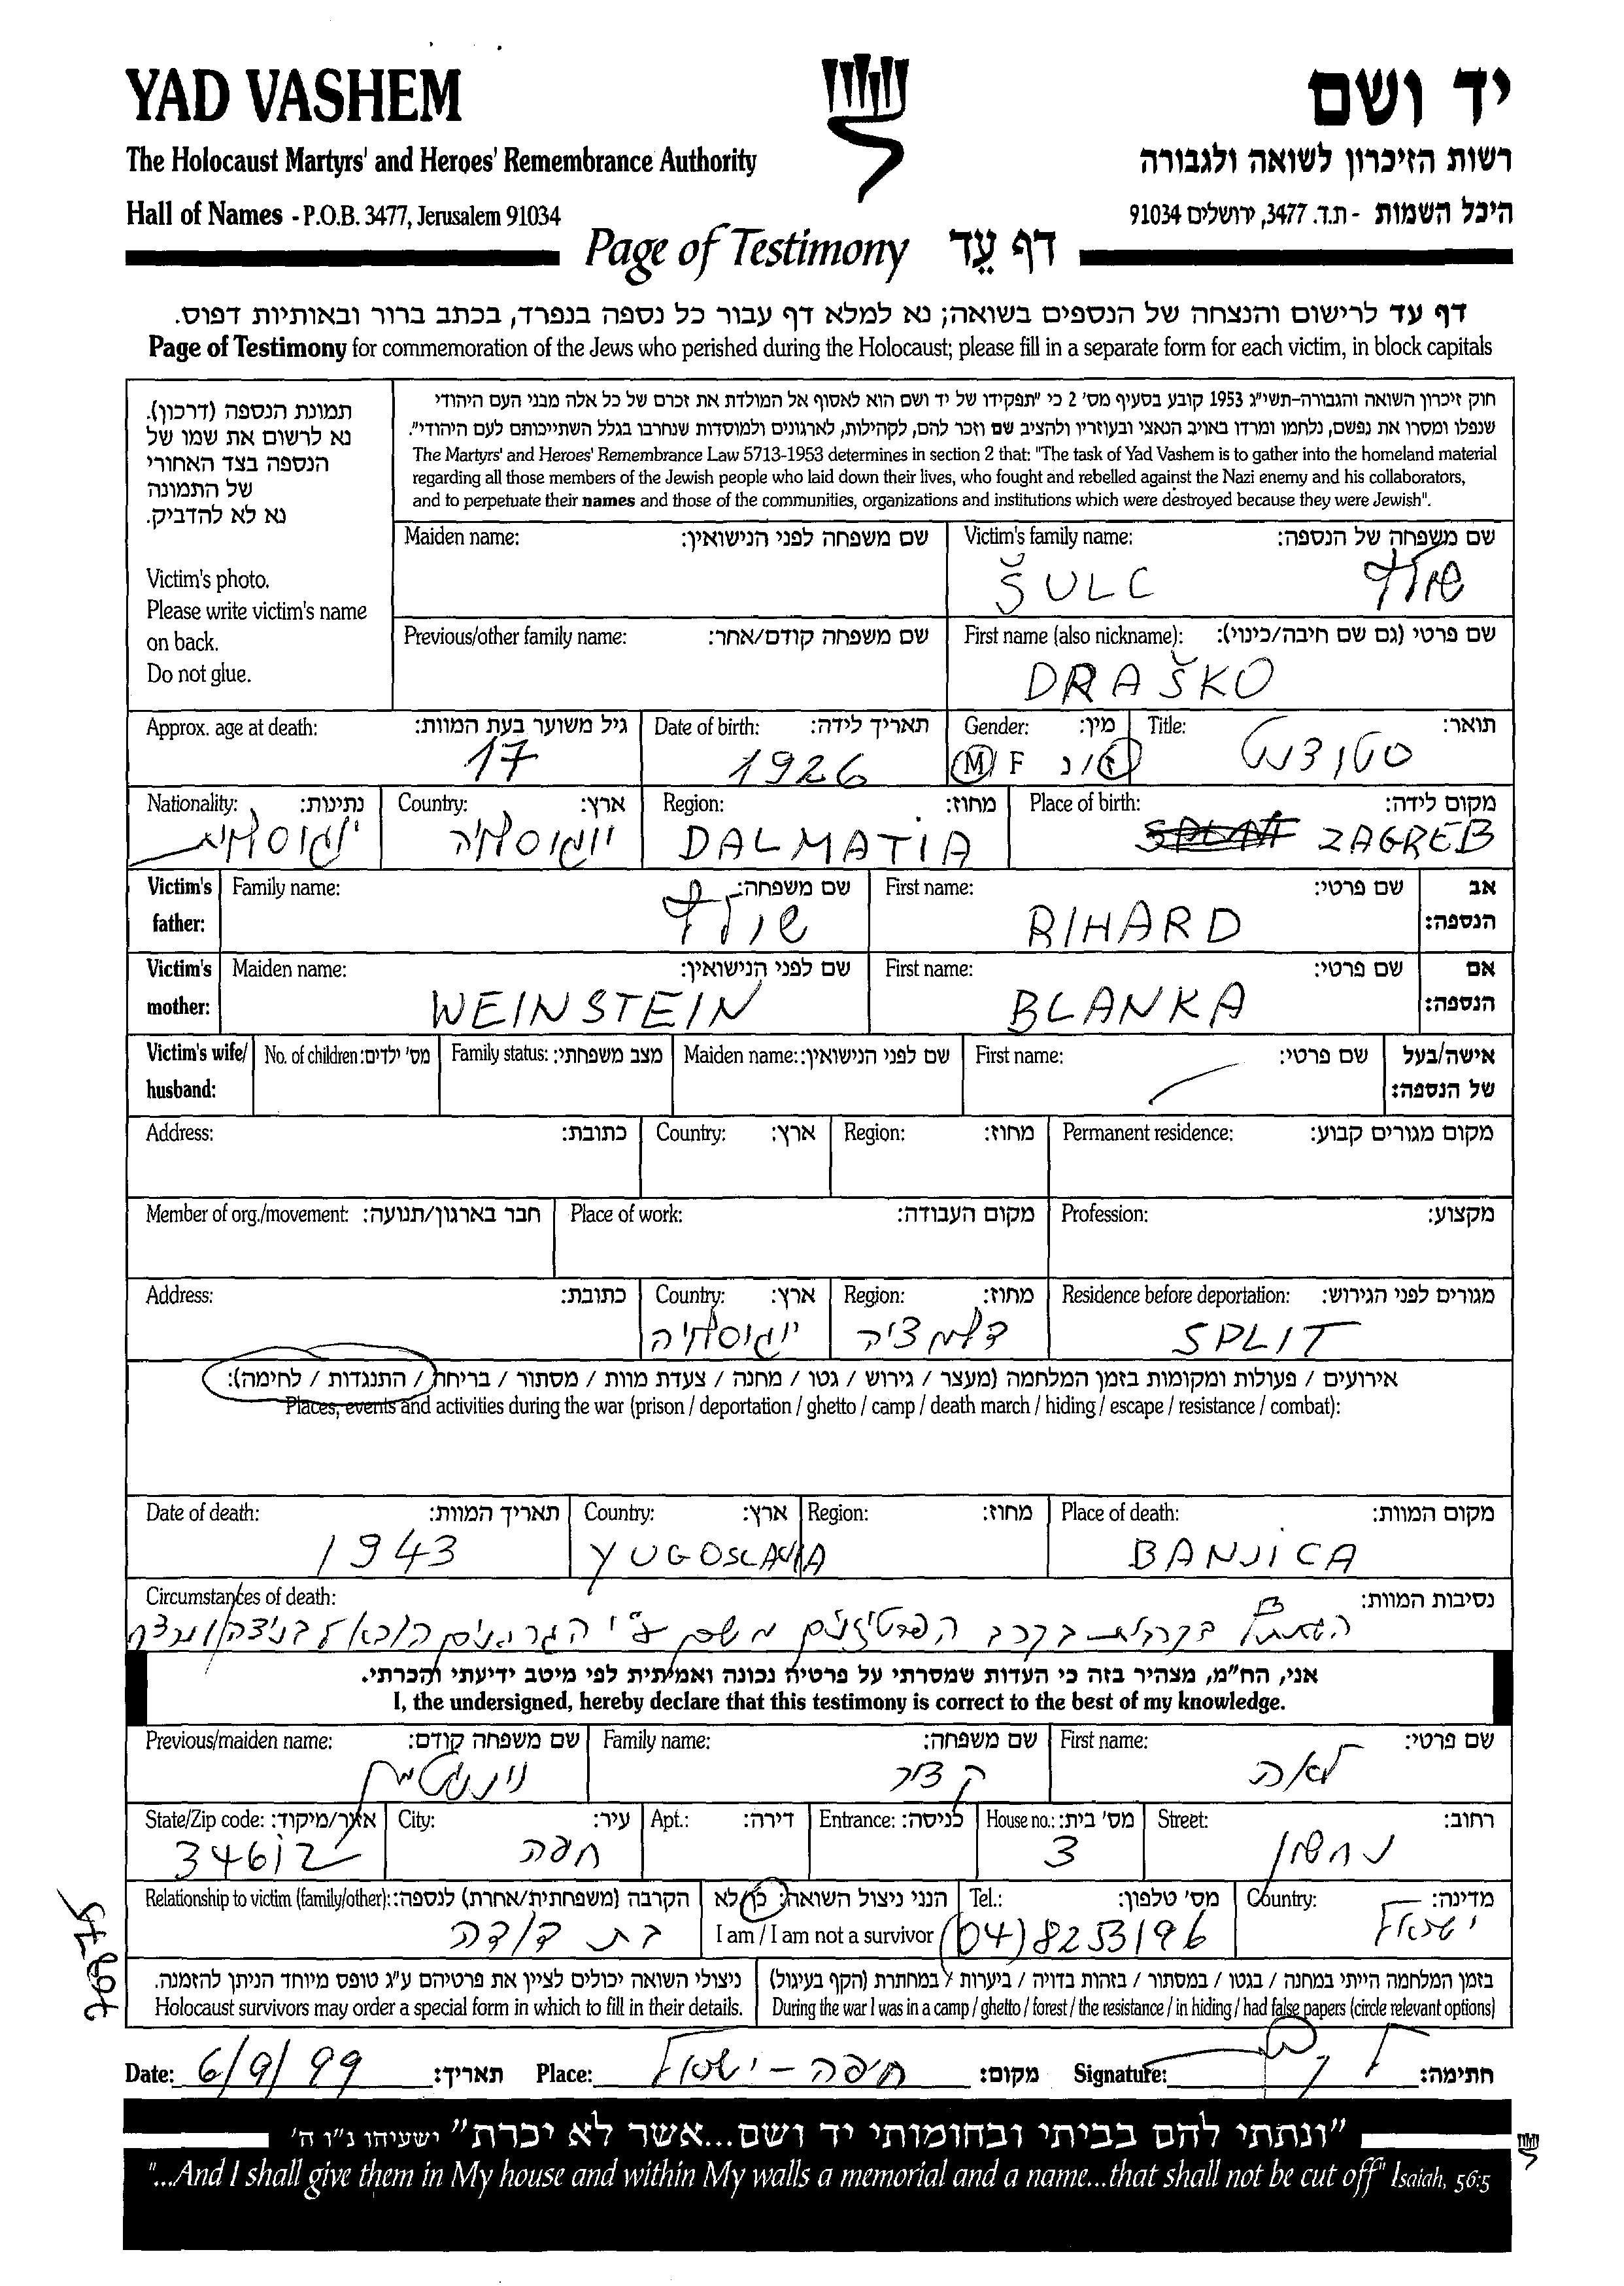 YAD VASHEM
יד ושם
The Holocaust Martyrs' and Heroes' Remembrance Authority
רשות הזיכרון לשואה ולגבורה
Hall of Names - P.O.B. 3477, Jerusalem 91034
היכל השמות - ת.ד. 3477, ירושלים 91034
Page of Testimony דף עֵד
דף עד לרישום והנצחה של הנספים בשואה; נא למלא דף עבור כל נספה בנפרד, בכתב ברור ובאותיות דפוס.
Page of Testimony for commemoration of the Jews who perished during the Holocaust; please fill in a separate form for each victim, in block capitals
תמונת הנספה (דרכון).
נא לרשום את שמו של
הנספה בצד האחורי
של התמונה
נא לא להדביק.
Victim's photo.
Please write victim's name
on back.
Do not glue.
חוק זיכרון השואה והגבורה-תשי"ג 1953 קובע בסעיף מס' 2 כי "תפקידו של יד ושם הוא לאסוף אל המולדת את זכרם של כל אלה מבני העם היהודי
שנפלו ומסרו את נפשם, נלחמו ומרדו באויב הנאצי ובעוזריו ולהציב שם וזכר להם, לקהילות, לארגונים ולמוסדות שנחרבו בגלל השתייכותם לעם היהודי".
The Martyrs' and Heroes' Remembrance Law 5713-1953 determines in section 2 that: "The task of Yad Vashem is to gather into the homeland material
regarding all those members of the Jewish people who laid down their lives, who fought and rebelled against the Nazi enemy and his collaborators,
and to perpetuate their names and those of the communities, organizations and institutions which were destroyed because they were Jewish".
Maiden name: שם משפחה לפני הנישואין: Victim's family name: שם משפחה של הנספה:
ŠULC שולץ
Previous/other family name: שם משפחה קודם/אחר: First name (also nickname): שם פרטי (גם שם חיבה/כינוי):
DRAŠKO
Approx. age at death: גיל משוער בעת המוות: Date of birth: תאריך לידה: Gender: מין: Title: תואר:
17 1926 M F ז/נ סטודנט
Nationality: נתינות: Country: ארץ: Region: מחוז: Place of birth: מקום לידה:
יוגוסלבית יוגוסלביה DALMATIA ZAGREB
Victim's father: Family name: שם משפחה: First name: שם פרטי: אב הנספה:
שולץ RIHARD
Victim's mother: Maiden name: שם לפני הנישואין: First name: שם פרטי: אם הנספה:
WEINSTEIN BLANKA
Victim's wife/ husband: No. of children: מס' ילדים: Family status: מצב משפחתי: Maiden name: שם לפני הנישואין: First name: שם פרטי: אישה/בעל של הנספה:
Address: כתובת: Country: ארץ: Region: מחוז: Permanent residence: מקום מגורים קבוע:
Member of org./movement: חבר בארגון/תנועה: Place of work: מקום העבודה: Profession: מקצוע:
Address: כתובת: Country: ארץ: Region: מחוז: Residence before deportation: מגורים לפני הגירוש:
יוגוסלביה דלמציה SPLIT
אירועים / פעולות ומקומות בזמן המלחמה (מעצר / גירוש / גטו / מחנה / צעדת מוות / מסתור / בריחה / התנגדות / לחימה):
Places, events and activities during the war (prison / deportation / ghetto / camp / death march / hiding / escape / resistance / combat):
Date of death: תאריך המוות: Country: ארץ: Region: מחוז: Place of death: מקום המוות:
1943 YUGOSLAVIA BANJICA
Circumstances of death: נסיבות המוות:
בקרב הפרטיזנים ע"י הגרמנים הובא לבניצה ונרצח
אני, הח"מ, מצהיר בזה כי העדות שמסרתי על פרטיה נכונה ואמיתית לפי מיטב ידיעתי והכרתי.
I, the undersigned, hereby declare that this testimony is correct to the best of my knowledge.
Previous/maiden name: שם משפחה קודם: Family name: שם משפחה: First name: שם פרטי:
וינשטיין קציר לאה
State/Zip code: אזור/מיקוד: City: עיר: Apt.: דירה: Entrance: כניסה: House no.: מס' בית: Street: רחוב:
34612 חיפה 3 נחשון
Relationship to victim (family/other): הקרבה (משפחתית/אחרת) לנספה: הנני ניצול השואה: כן/לא Tel.: מס' טלפון: Country: מדינה:
בת דודה I am / I am not a survivor (04)8253196 ישראל
ניצולי השואה יכולים לציין את פרטיהם ע"ג טופס מיוחד הניתן להזמנה. בזמן המלחמה הייתי במחנה / בגטו / במסתור / בזהות בדויה / ביערות / במחתרת (הקף בעיגול)
Holocaust survivors may order a special form in which to fill in their details. During the war I was in a camp / ghetto / forest / the resistance / in hiding / had false papers (circle relevant options)
Date: 6/9/99 תאריך: Place: חיפה - ישראל מקום: Signature: חתימה:
"ונתתי להם בביתי ובחומותי יד ושם...אשר לא יכרת" ישעיהו נ"ו ה'
"...And I shall give them in My house and within My walls a memorial and a name...that shall not be cut off" Isaiah, 56:5